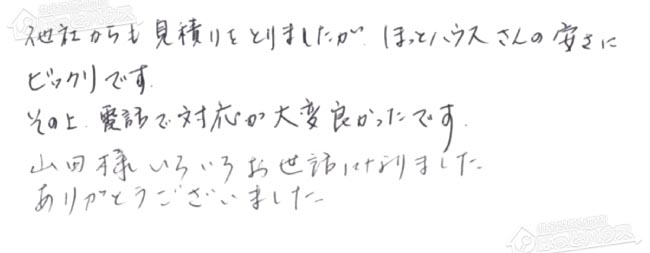 他社からも見積りをとりましたが、ほっとハウスさんの安さに
ビックリです。
その上、電話で対応が大変良かったです。
山田様いろいろお世話になりました。
ありがとうございました。
ほっとハウス